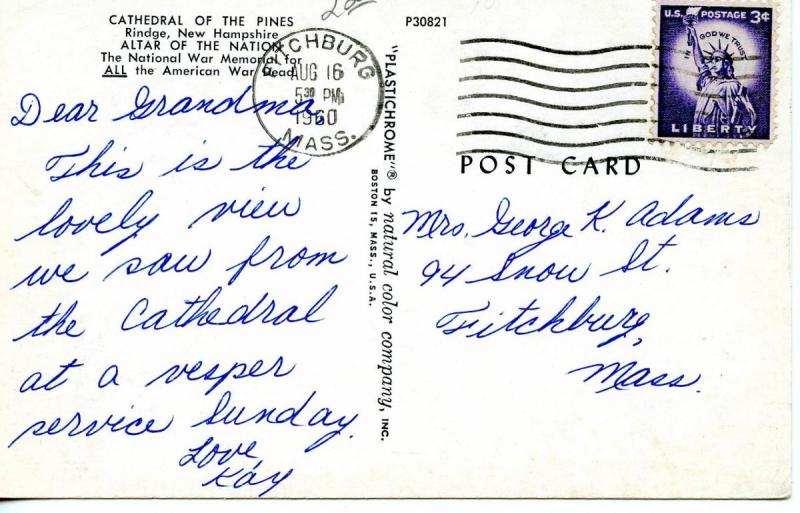 CATHEDRAL OF THE PINES
Rindge, New Hampshire
ALTAR OF THE NATION
The National War Memorial for
ALL the American War Dead.
P30821
FITCHBURG
AUG 16
5 30 PM
1960
MASS.
U.S. POSTAGE 3¢
IN GOD WE TRUST
LIBERTY
POST CARD
Dear Grandma,
This is the
lovely view
we saw from
the Cathedral
at a vesper
service Sunday.
Love,
Kay
"PLASTICHROME"® by natural color company, INC.
BOSTON 15, MASS., U.S.A.
Mrs. George K. Adams
94 Snow St.
Fitchburg,
Mass.